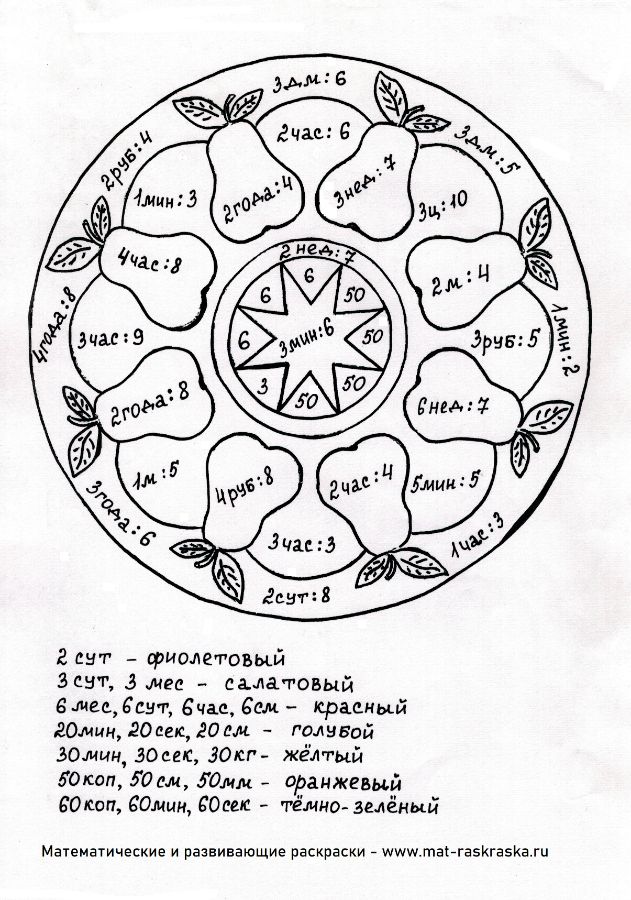 3дм:6
2руб:4
2час:6
3дм:5
1мин:3
2года:4
3нед:7
3ц:10
4час:8
2нед:7
2м:4
6
6
50
4года:8
3час:9
6
3мин:6
50
3руб:5
1мин:2
3
50
50
2года:8
6нед:7
1м:5
4руб:8
2час:4
5мин:5
3года:6
3час:3
1час:3
2сут:8
2 сут - фиолетовый
3 сут, 3 мес - салатовый
6 мес, 6 сут, 6 час, 6 см - красный
20 мин, 20 сек, 20 см - голубой
30 мин, 30 сек, 30 кг - жёлтый
50 коп, 50 см, 50 мм - оранжевый
60 коп, 60 мин, 60 сек - тёмно-зелёный
Математические и развивающие раскраски - www.mat-raskraska.ru